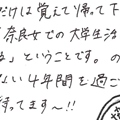 だけは覚えて帰って下
「奈良女での大学生活
」ということです。の
ない4年間を過ご
待ってます〜!!